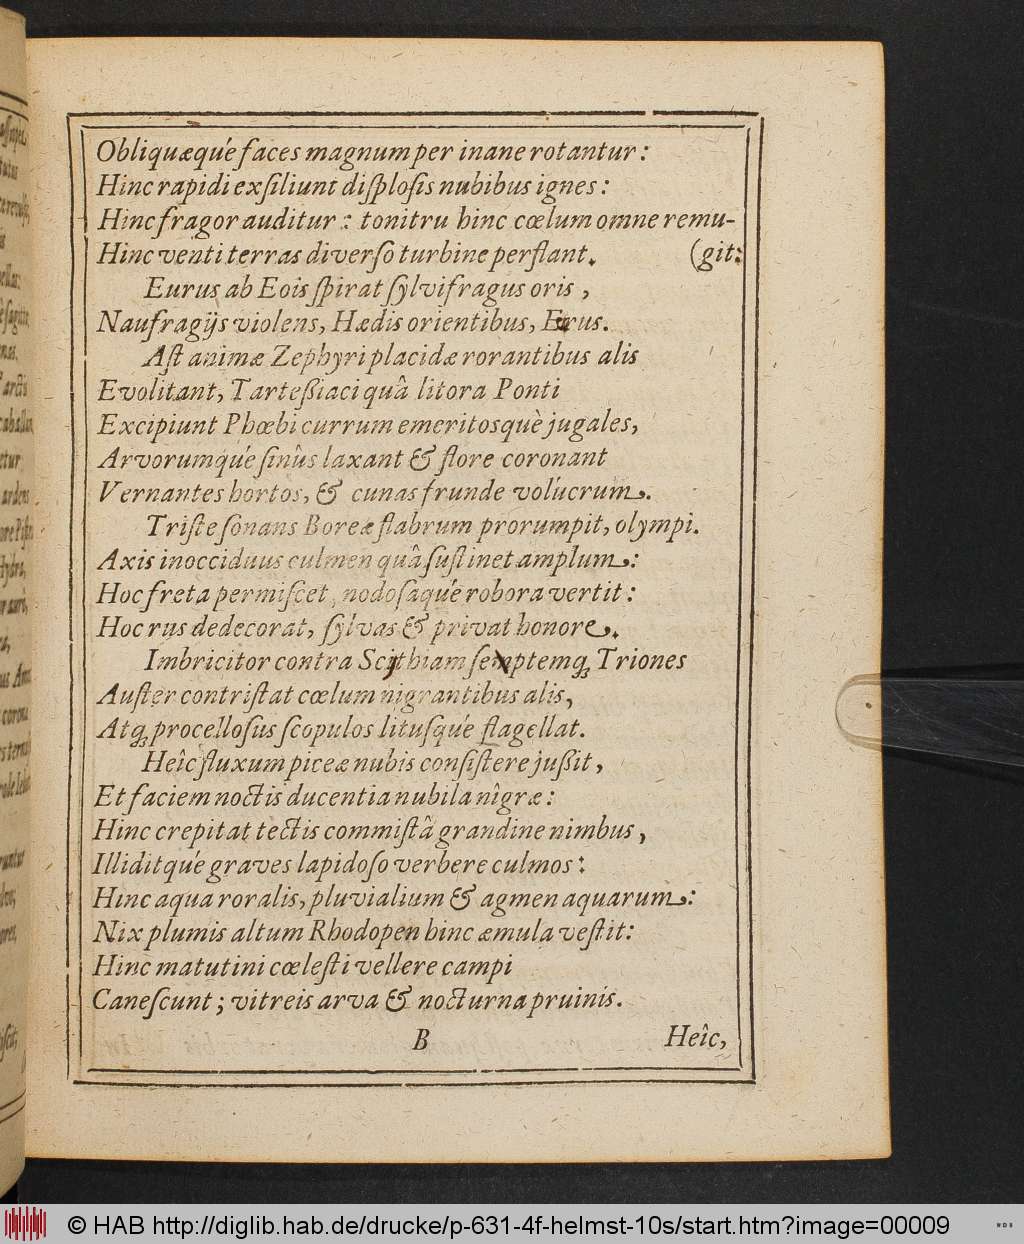 Obliquæqúe faces magnum per inane rotantur:
Hinc rapidi exſiliunt diſploſis nubibus ignes:
Hinc fragor auditur: tonitru hinc cœlum omne remu-
Hinc venti terras diverſo turbine perflant. (git:
Eurus ab Eois ſpirat ſylvifragus oris,
Naufragijs violens, Hædis orientibus, Eurus.
Aſt animæ Zephyri placidæ rorantibus alis
Evolitant, Tarteßiaci quâ litora Ponti
Excipiunt Phœbi currum emeritosquè jugales,
Arvorumqúe ſinûs laxant & flore coronant
Vernantes hortos, & cunas frunde volúcrum.
Triſte ſonans Boreæ flabrum prorumpit, olympi.
Axis inocciduus culmen quâ ſuſtinet amplum:
Hoc freta permiſcet, nodoſaqúe robora vertit:
Hoc rus dedecorat, ſylvas & privat honore.
Imbricitor contra Scythiam ſemptemq; Triones
Auſter contriſtat cœlum nigrantibus alis,
Atq; procelloſus ſcopulos lituſqúe flagellat.
Heîc fluxum piceæ nubis conſiſtere jußit,
Et faciem noctis ducentia nubila nîgræ:
Hinc crepitat tectis commiſtâ grandine nimbus,
Illiditqúe graves lapidoſo verbere culmos:
Hinc aqua roralis, pluvialium & agmen aquarum:
Nix plumis altum Rhodopen hinc æmula veſtit:
Hinc matutini cœleſti vellere campi
Caneſcunt; vitreis arva & nocturna pruinis.
B Heîc,
© HAB http://diglib.hab.de/drucke/p-631-4f-helmst-10s/start.htm?image=00009